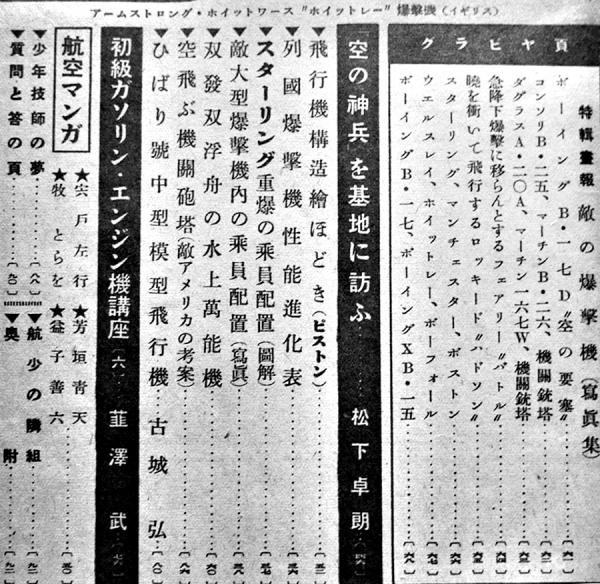 アームストロング・ホイットワース "ホイットレー" 爆擊機(イギリス)
グラビヤ頁
特輯畫報 敵の爆擊機(寫眞集)
ボーイングB・一七D"空の要塞"
コンソリB・二五、マーチンB・二六、機關銃塔
ダグラスA・二〇A、マーチン一六七W、機關銃塔
急降下爆擊に移らんとするフェアリー"バトル"
曉を衝いて飛行するロッキード"ハドソン"
スターリング、マンチェスター、ボストン
ウエルスレイ、ホイットレー、ボーフォール
ボーイングB・一七、ボーイングXB・一五
「空の神兵」を基地に訪ふ 松下卓朗
▼飛行機構造繪ほどき(ピストン)
▼列國爆擊機性能進化表
▼スターリング重爆の乘員配置(圖解)
▼敵大型爆擊機內の乘員配置(寫眞)
▼双發双浮舟の水上萬能機
▼空飛ぶ機關砲塔(敵アメリカの考案)
▼ひばり號中型模型飛行機 古城 弘〔八〇〕
初級ガソリン・エンジン機講座(十六) 韮澤 武
航空マンガ
★宍戶左行 ★芳垣靑天
★牧 とらを ★益子善六
▼少年技師の夢 ▼航少の隣組
▼質問と答の頁 ▼奥 附